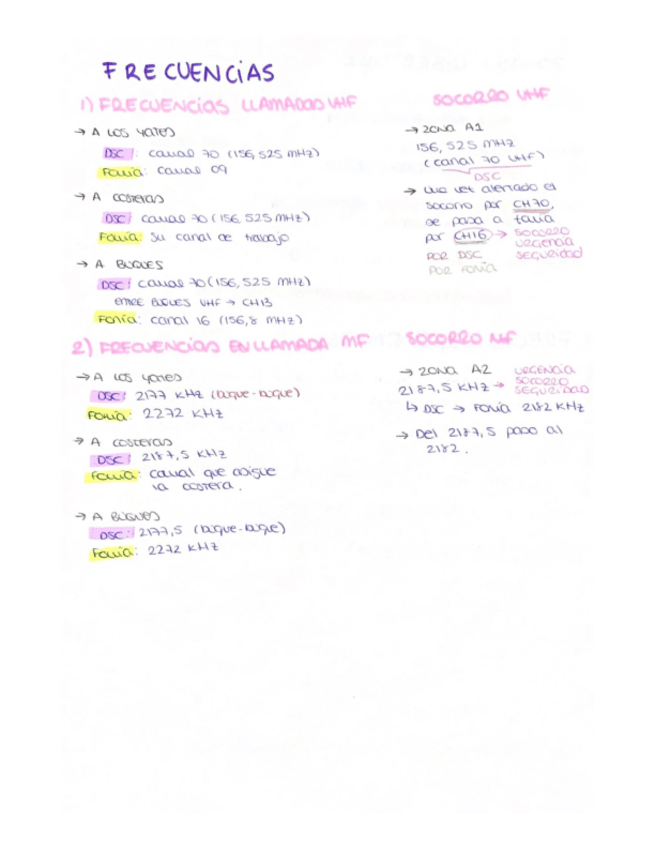 FRECUENCIAS
1) FRECUENCIAS LLAMADAS VHF
→ A LOS YATES
DSC: canal 70 (156,525 MHz)
Fonía: canal 09
→ A costeras
DSC: canal 70 (156,525 MHz)
Fonía: su canal de trabajo
→ A BUQUES
DSC: canal 70 (156,525 MHz)
ENTRE BUQUES VHF → CH13
Fonía: canal 16 (156,8 MHz)
2) FRECUENCIAS EN LLAMADA MF
→ A LOS yates
DSC: 2177 KHz (buque-buque)
Fonía: 2272 KHz
→ A costeras
DSC: 2187,5 KHz
Fonía: canal que asigue
la costera.
→ A BUQUES
DSC: 2177,5 (buque-buque)
Fonía: 2272 KHz
SOCORRO VHF
→ ZONA A1
156,525 MHz
(canal 70 VHF)
DSC
→ una vez alertado el
socorro por CH70,
se pasa a fonía
por CH16 → SOCORRO
URGENCIA
SEGURIDAD
POR DSC
POR FONÍA
SOCORRO MF
→ ZONA A2
2187,5 KHz → URGENCIA
SOCORRO
SEGURIDAD
↳ DSC → Fonía 2182 KHz
→ Del 2187,5 paso al
2182.